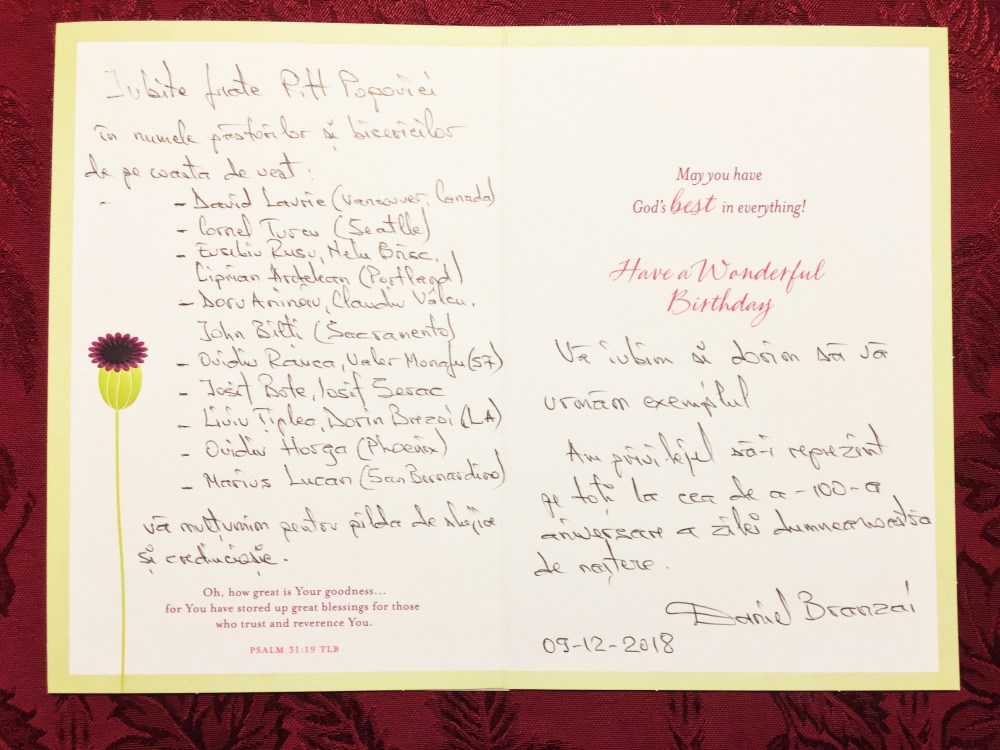 Iubite frate Pitt Popovici
în numele păstorilor și bisericilor
de pe coasta de vest :
- David Laurie (Vancouver, Canada)
- Cornel Turcu (Seattle)
- Eusebiu Rusu, Nelu Brisc,
Ciprian Ardelean (Portland)
- Doru Aninou, Claudiu Vâlcu,
John Bilti (Sacramento)
- Ovidiu Rauca, Valer Mongfu (SJ)
- Iosif Bote, Iosif Serac
- Liviu Țiplea, Dorin Brezoi (LA)
- Ovidiu Horga (Phoenix)
- Marius Lucan (San Bernardino)
vă mulțumim pentru pilda de slujire
și credincioșie.
Oh, how great is Your goodness...
for You have stored up great blessings for those
who trust and reverence You.
PSALM 31:19 TLB
May you have
God's best in everything!
Have a Wonderful
Birthday
Vă iubim și dorim să vă
urmăm exemplul
Am privilegiul să-i reprezint
pe toți la cea de a -100-a
aniversare a zilei dumneavoastră
de naștere.
Daniel Branzai
09-12-2018